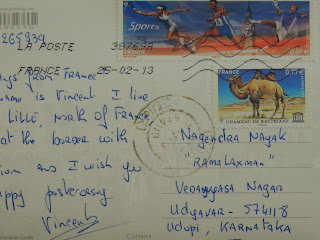 265934
Sports
LA POSTE 39769A
FRANCE 25-02-13
FRANCE 0,77€
CHAMEAU DE BACTRIANE
ys from France
name is Vincent I live
LILLE, North of France
at the border with
and I wish you
appy postcrossing
Vincent
Nagendra Nayak
"RAMALAXMAN"
VEDAVYASA NAGAR
Udyavar - 574118
Udupi, KARNATAKA